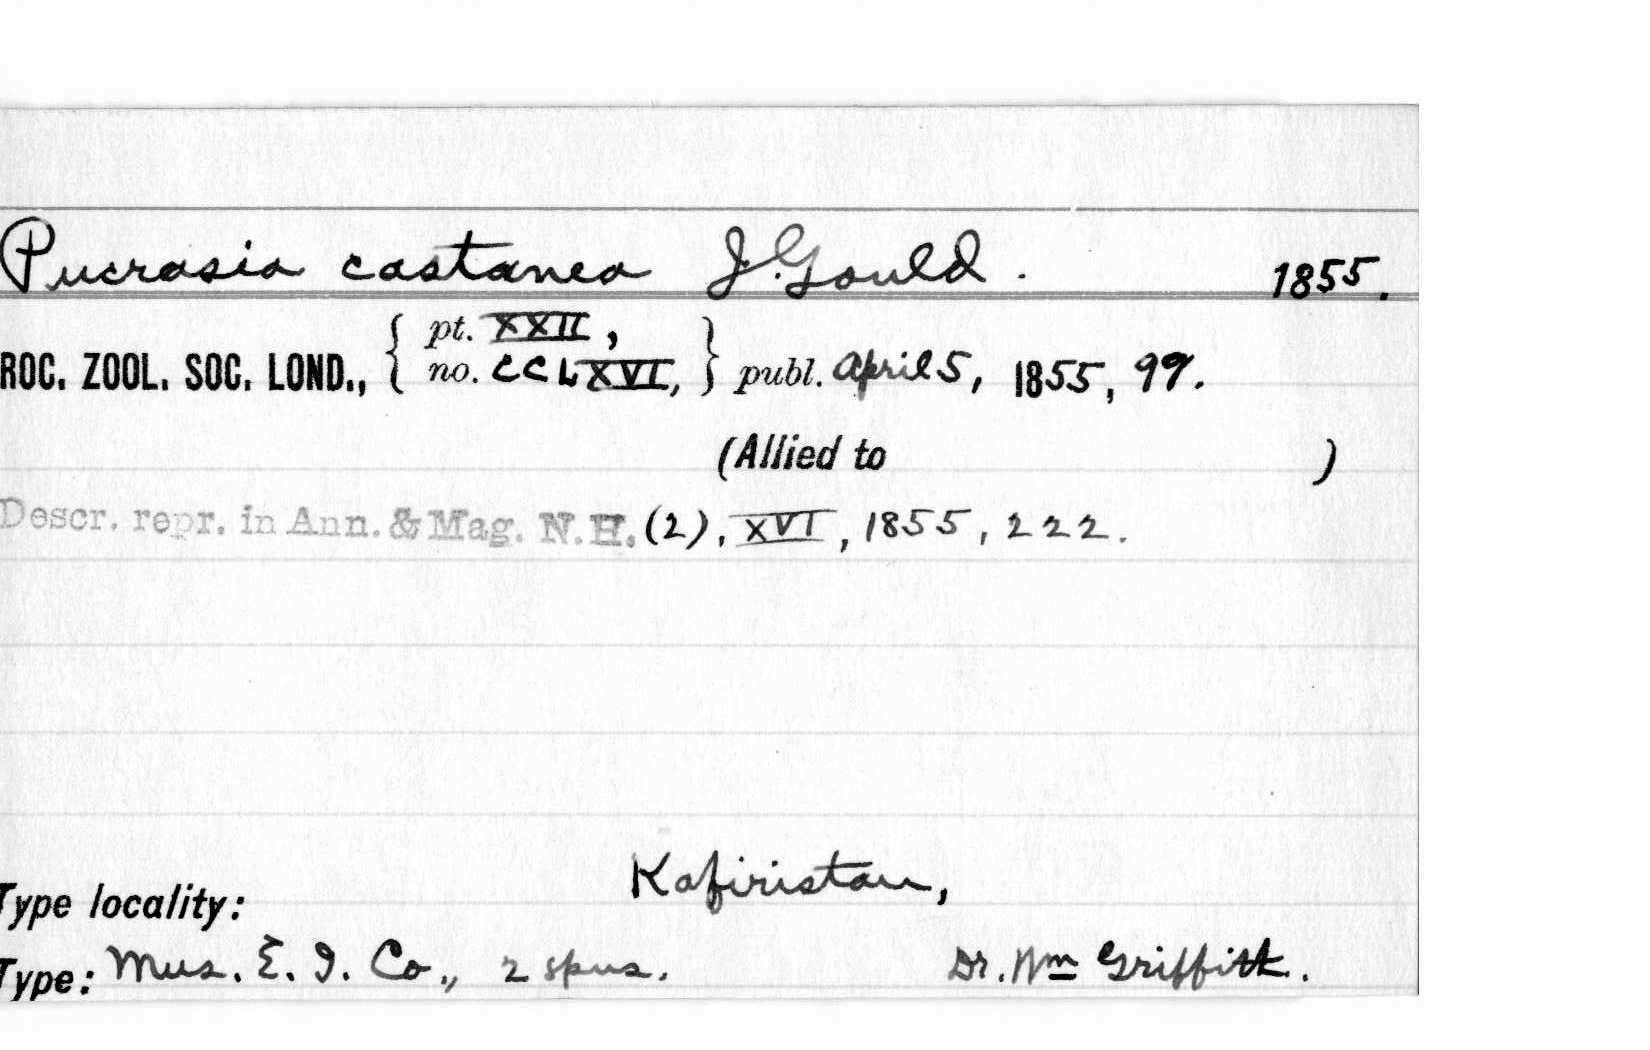 Pucrasia castanea J. Gould. 1855.
ROC. ZOOL. SOC. LOND., { pt. XXII, no. CCLXVI, } publ. April 5, 1855, 99.
(Allied to )
Descr. repr. in Ann. & Mag. N.H. (2), XVI, 1855, 222.
Type locality: Kafiristan,
Type: Mus. E. I. Co., 2 spns. Dr. Wm Griffith.